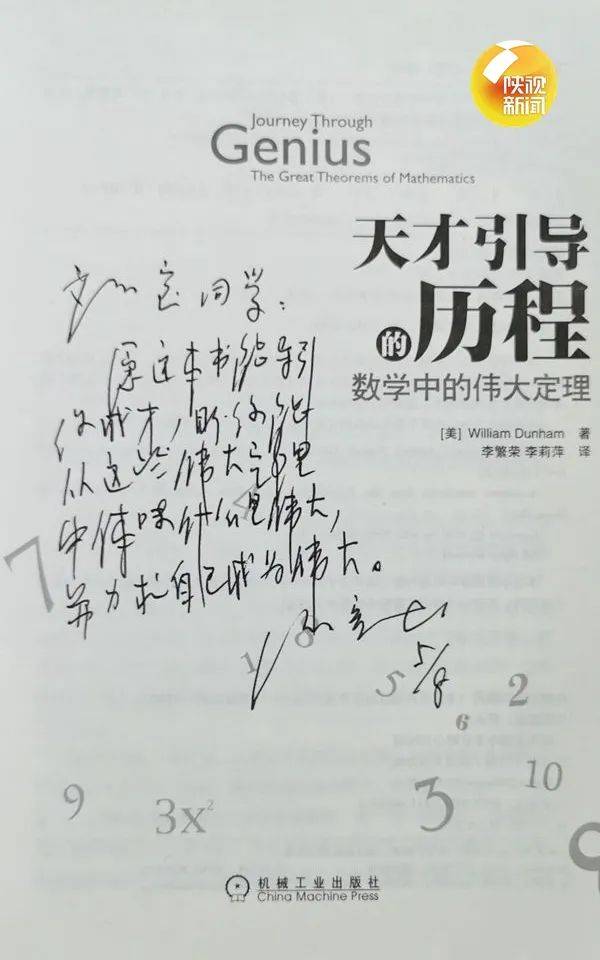 陕视
新闻
Journey Through
Genius
The Great Theorems of Mathematics
天才引导
的历程
数学中的伟大定理
[美] William Dunham 著
李繁荣 李莉萍 译
同学：
愿这本书能引
你成才，盼你能
从这些伟大定理
中体味什么是伟大，
并力求自己成为伟大。
5/8
7
4
1
8
5
2
6
9
3x²
3
10
9
机械工业出版社
China Machine Press